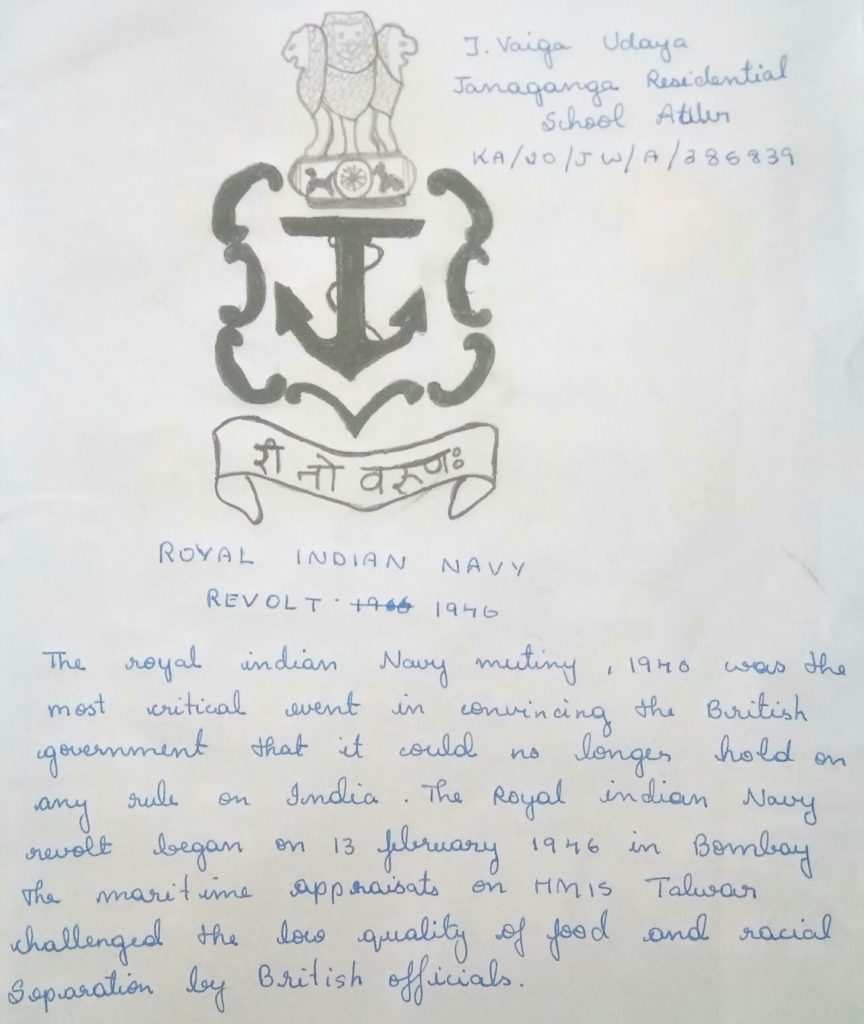 J. Vaiga Udaya
Janaganga Residential
School
KA/20/JW/A/386839
री नो वरूणः
ROYAL INDIAN NAVY
REVOLT. 1966 1946
The royal indian Navy mutiny, 1940 was the
most critical event in convincing the British
government that it could no longer hold on
any rule on India. The Royal indian Navy
revolt began on 13 february 1946 in Bombay
The maritime appraisats on HMIS Talwar
challenged the low quality of food and racial
Separation by British officials.